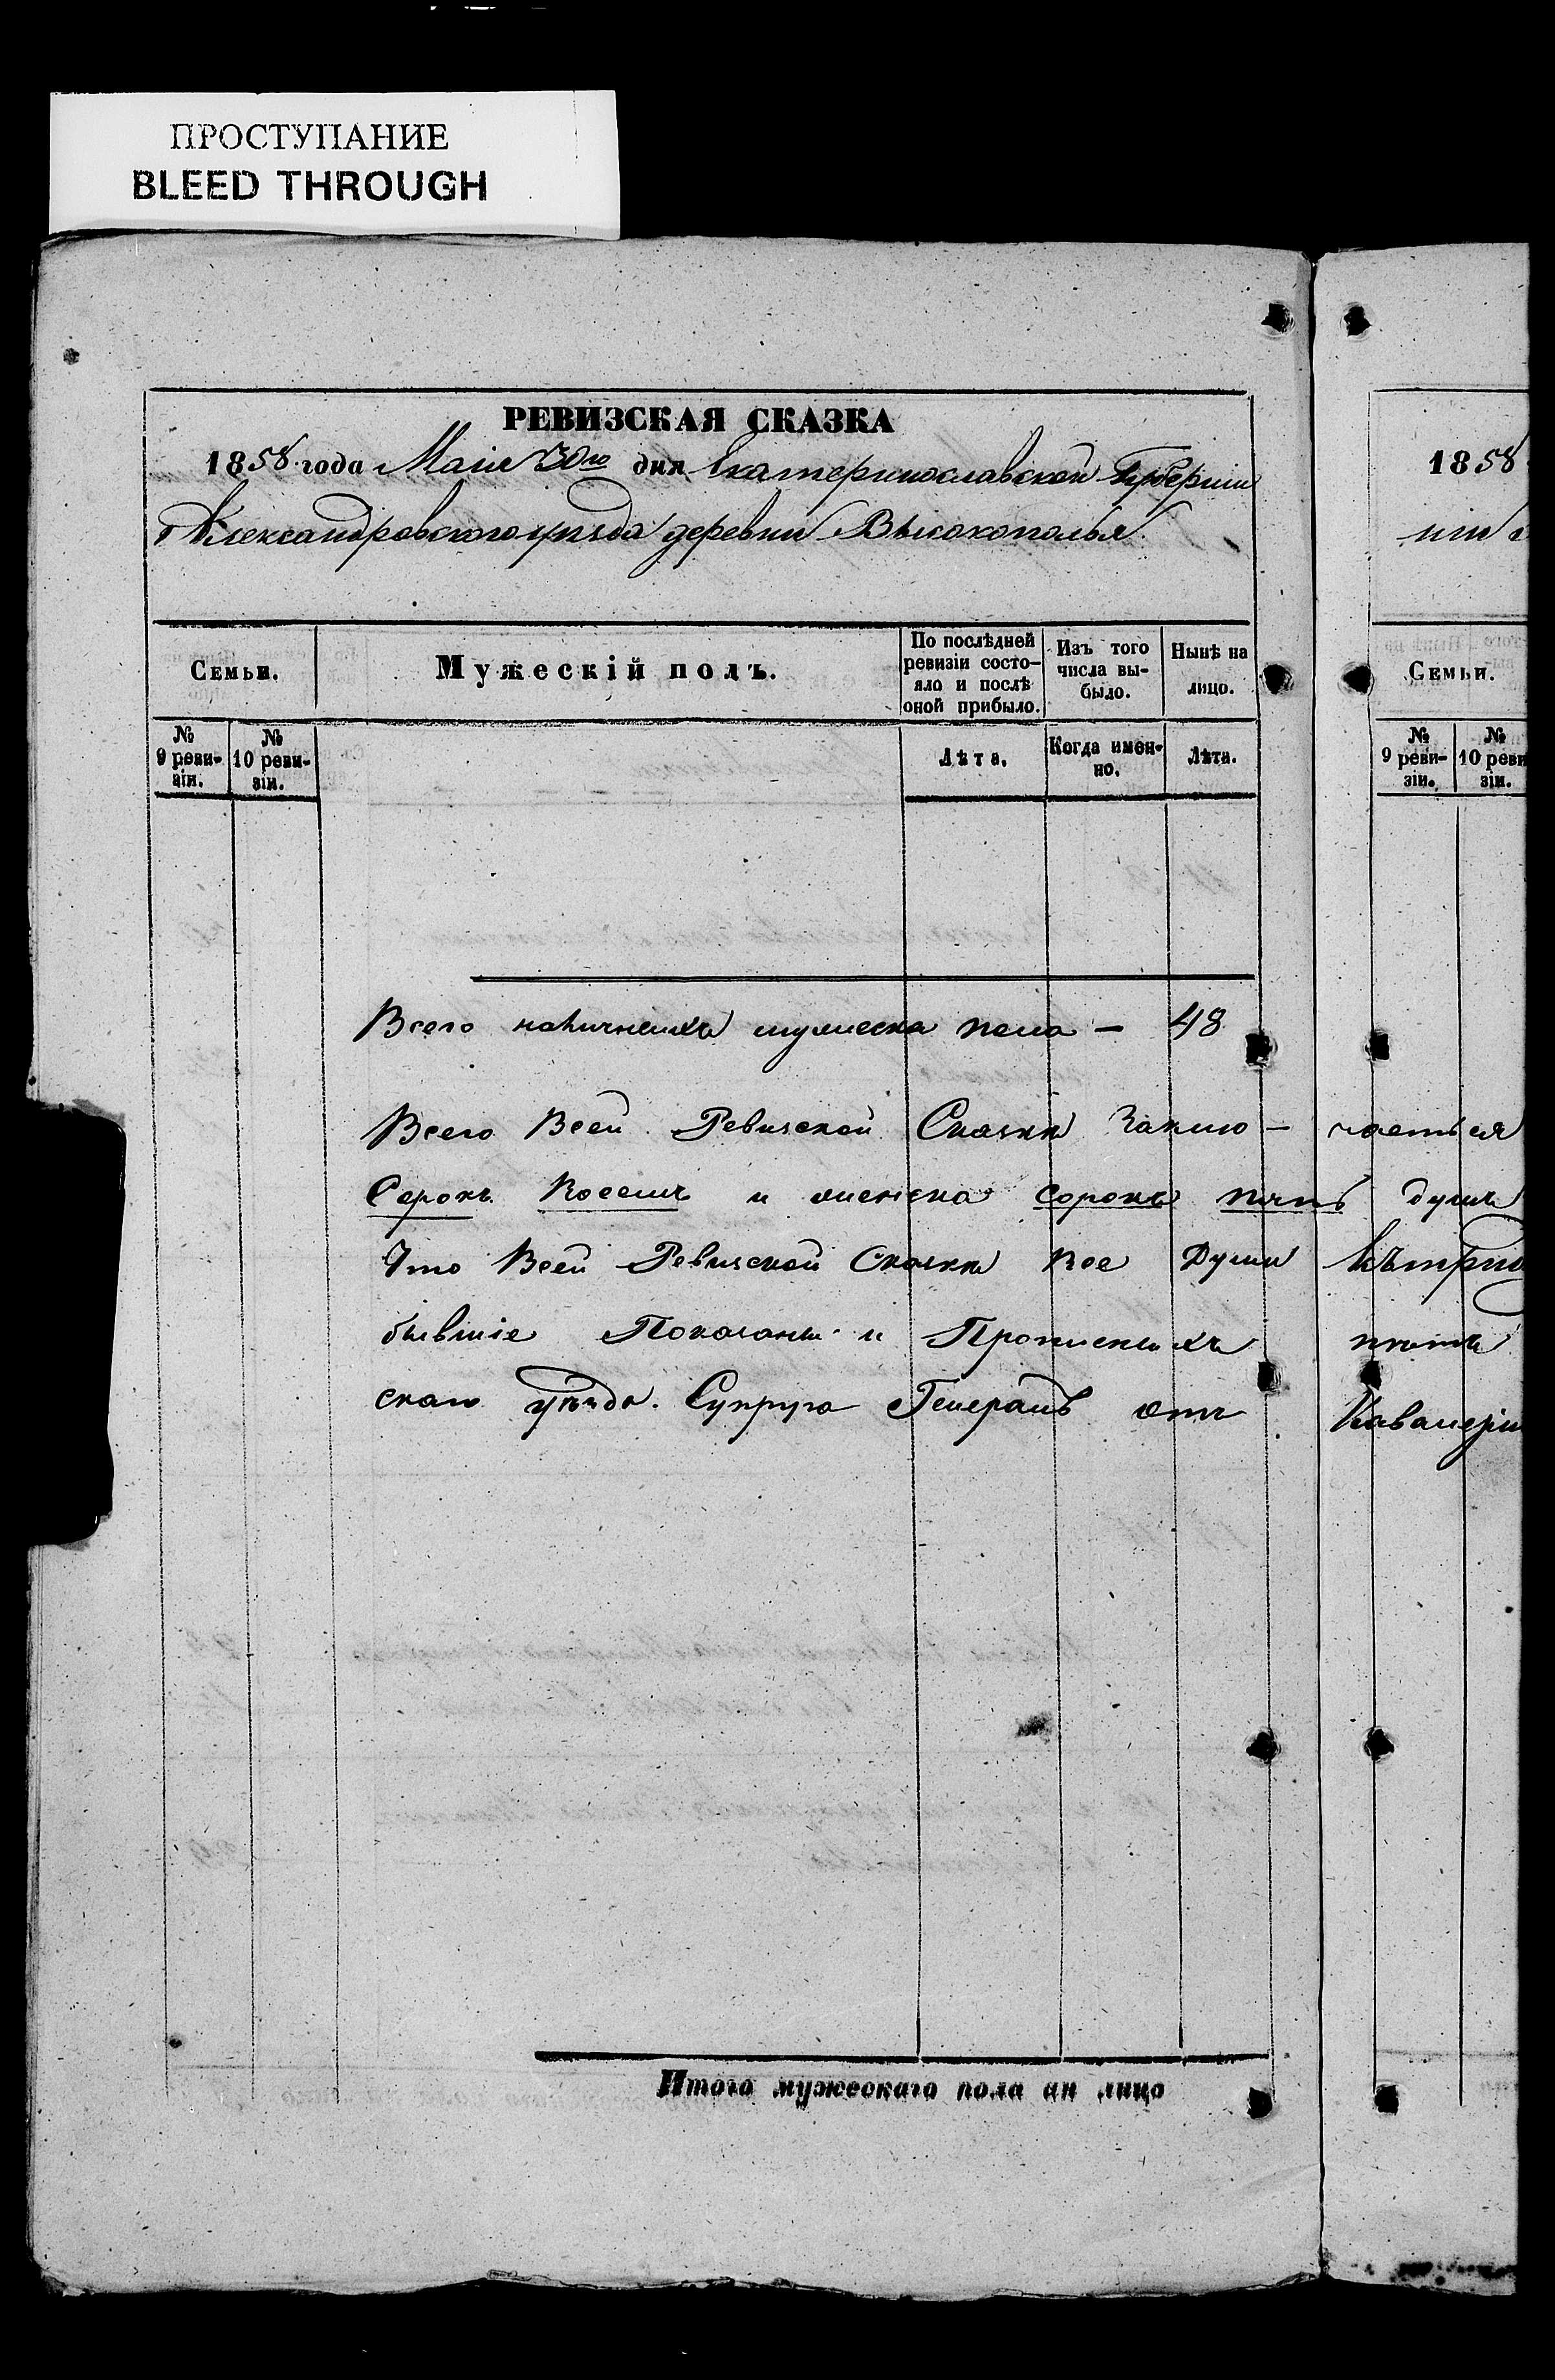 ПРОСТУПАНИЕ
BLEED THROUGH
РЕВИЗСКАЯ СКАЗКА
1858 года Маія 30го дня Екатеринославской Губерніи
Александровского уѣзда деревни Высокополья
Семьи.
Мужескій полъ.
По послѣдней ревизіи состо-
яло и послѣ оной прибыло.
Изъ того числа вы-
было.
Нынѣ на лицо.
№ 9 реви-
зіи.
№ 10 реви-
зіи.
Лѣта.
Когда имен-
но.
Лѣта.
Всего наличныхъ мужеска пола — 48
Всего Всей Ревизской Сказки Заклю- чаеться
Сорокъ Восемъ и женска сорокъ пять душъ
Что Всей Ревизской Сказки Все Души
бывшіе Показаны и Прописныхъ нѣтъ
скаго уѣзда. Супруга Генералъ отъ Кавалеріи
Итого мужескаго пола ан лицо
1858
Семьи.
№ 9 реви-
зіи.
№ 10 реви
зіи.